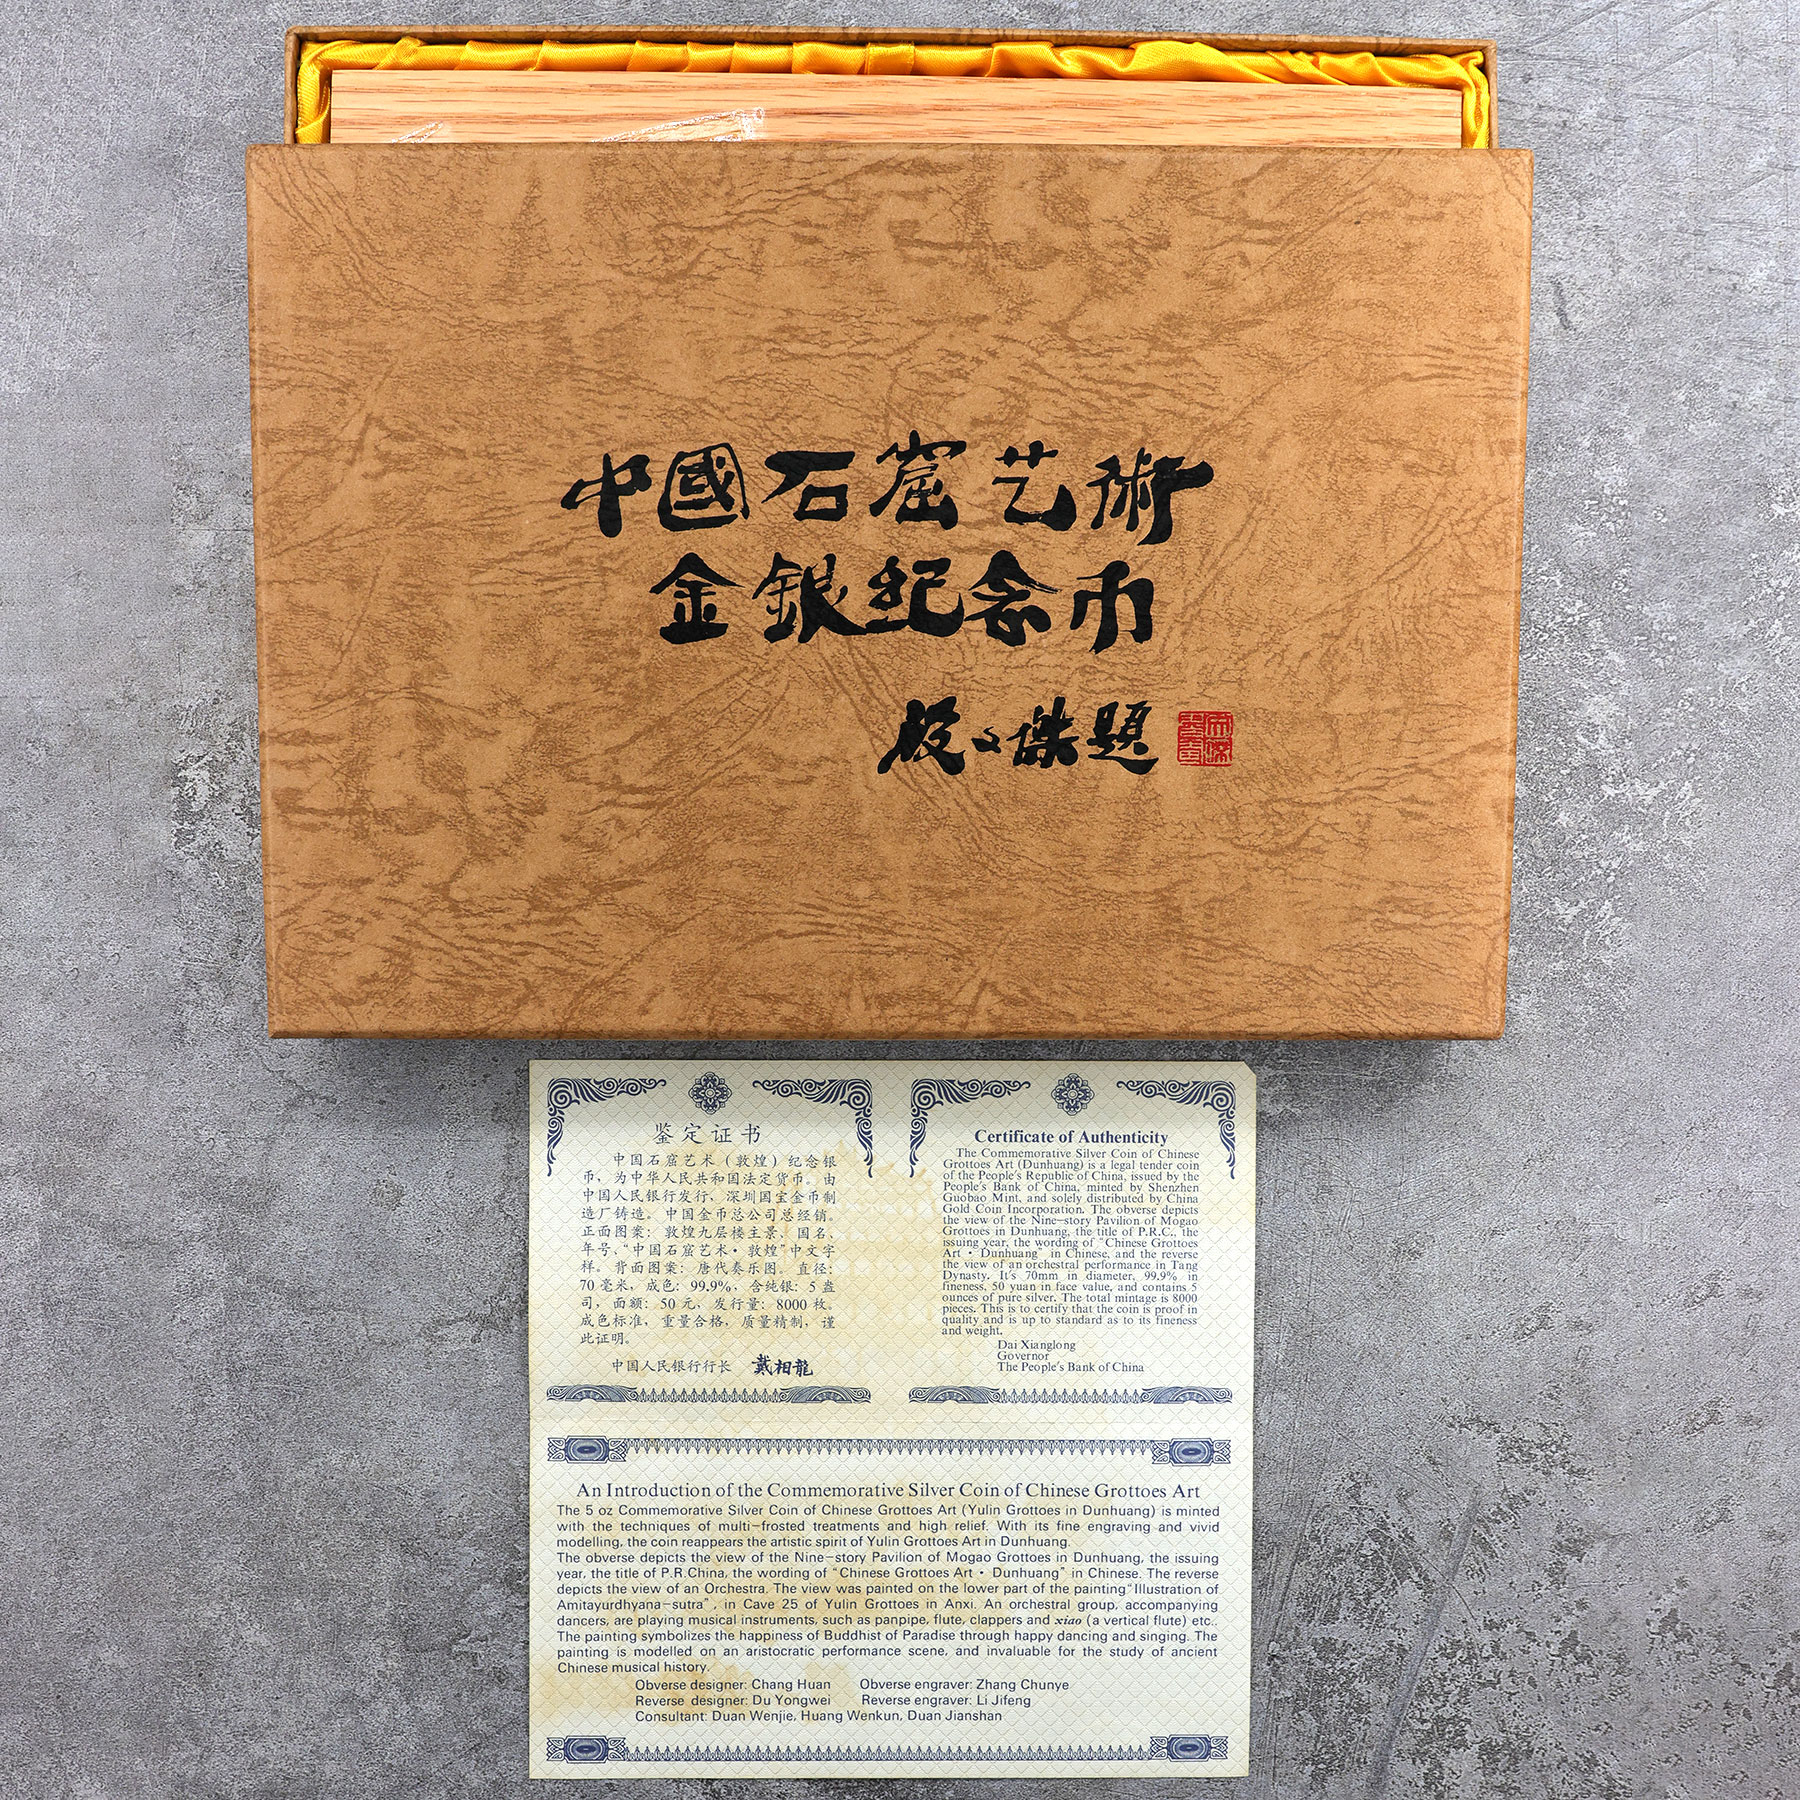 中國石窟艺術
金銀纪念币
段文傑題
鉴定证书
中国石窟艺术（敦煌）纪念银
币，为中华人民共和国法定货币。由
中国人民银行发行，深圳国宝金币制
造厂铸造。中国金币总公司总经销。
正面图案：敦煌九层楼主景、国名、
年号、“中国石窟艺术·敦煌”中文字
样。背面图案：唐代奏乐图。直径：
70毫米，成色：99.9%，含纯银：5盎
司，面额：50元，发行量：8000枚。
成色标准，重量合格，质量精制，谨
此证明。
中国人民银行行长 戴相龍
Certificate of Authenticity
The Commemorative Silver Coin of Chinese
Grottoes Art (Dunhuang) is a legal tender coin
of the People's Republic of China, issued by the
People's Bank of China, minted by Shenzhen
Guobao Mint, and solely distributed by China
Gold Coin Incorporation. The obverse depicts
the view of the Nine-story Pavilion of Mogao
Grottoes in Dunhuang, the title of P.R.C., the
issuing year, the wording of "Chinese Grottoes
Art · Dunhuang" in Chinese, and the reverse
the view of an orchestral performance in Tang
Dynasty. It's 70mm in diameter, 99.9% in
fineness, 50 yuan in face value, and contains 5
ounces of pure silver. The total mintage is 8000
pieces. This is to certify that the coin is proof in
quality and is up to standard as to its fineness
and weight.
Dai Xianglong
Governor
The People's Bank of China
An Introduction of the Commemorative Silver Coin of Chinese Grottoes Art
The 5 oz Commemorative Silver Coin of Chinese Grottoes Art (Yulin Grottoes in Dunhuang) is minted
with the techniques of multi-frosted treatments and high relief. With its fine engraving and vivid
modelling, the coin reappears the artistic spirit of Yulin Grottoes Art in Dunhuang.
The obverse depicts the view of the Nine-story Pavilion of Mogao Grottoes in Dunhuang, the issuing
year, the title of P.R.China, the wording of "Chinese Grottoes Art · Dunhuang" in Chinese. The reverse
depicts the view of an Orchestra. The view was painted on the lower part of the painting "Illustration of
Amitayurdhyana-sutra", in Cave 25 of Yulin Grottoes in Anxi. An orchestral group, accompanying
dancers, are playing musical instruments, such as panpipe, flute, clappers and xiao (a vertical flute) etc..
The painting symbolizes the happiness of Buddhist of Paradise through happy dancing and singing. The
painting is modelled on an aristocratic performance scene, and invaluable for the study of ancient
Chinese musical history.
Obverse designer: Chang Huan Obverse engraver: Zhang Chunye
Reverse designer: Du Yongwei Reverse engraver: Li Jifeng
Consultant: Duan Wenjie, Huang Wenkun, Duan Jianshan